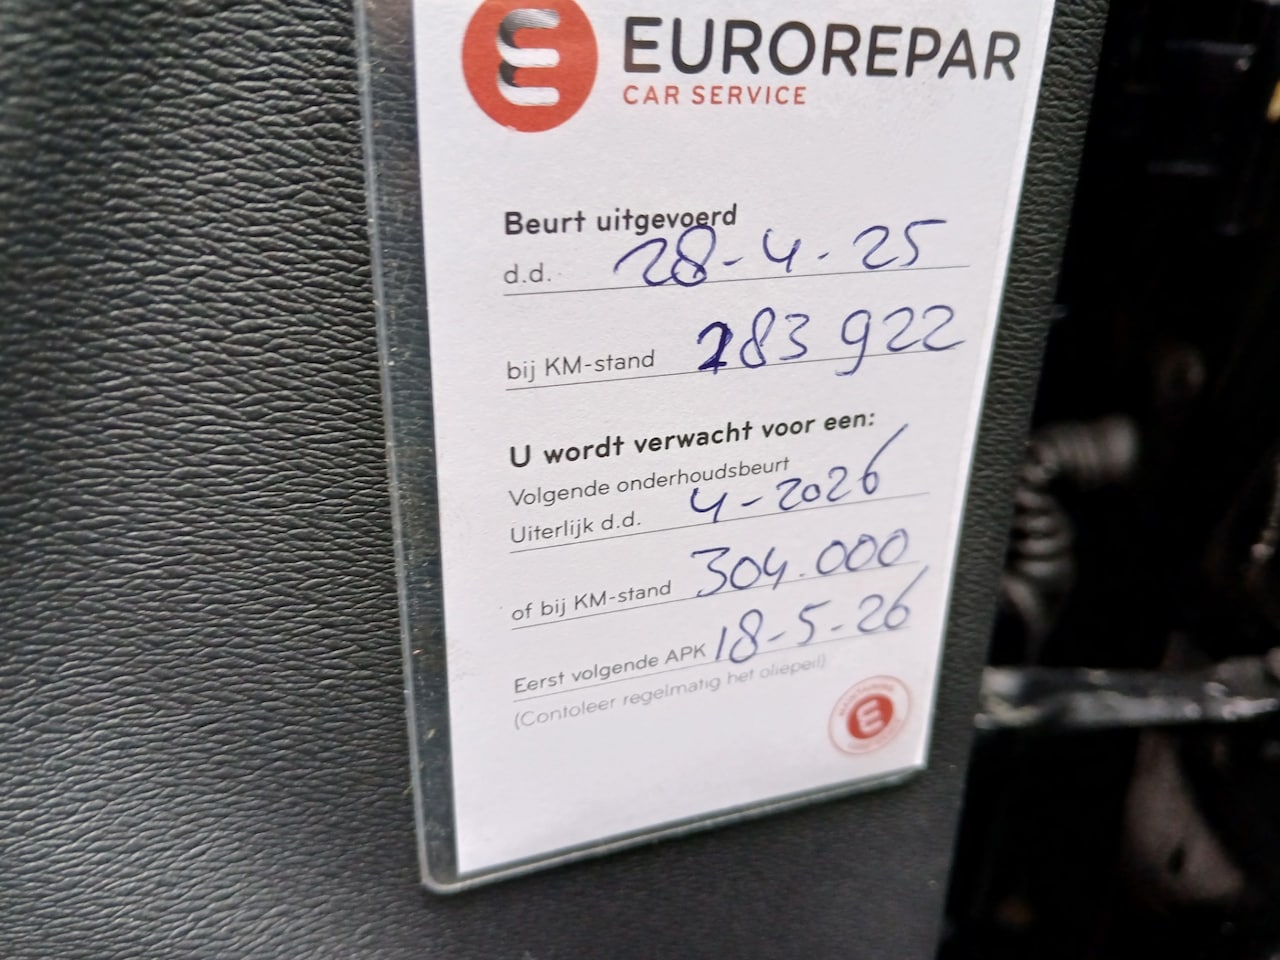 EUROREPAR
CAR SERVICE
Beurt uitgevoerd
d.d. 28-4-25
bij KM-stand 283 922
U wordt verwacht voor een:
Volgende onderhoudsbeurt
Uiterlijk d.d. 4-2026
of bij KM-stand 304.000
Eerst volgende APK 18-5-26
(Contoleer regelmatig het oliepeil)